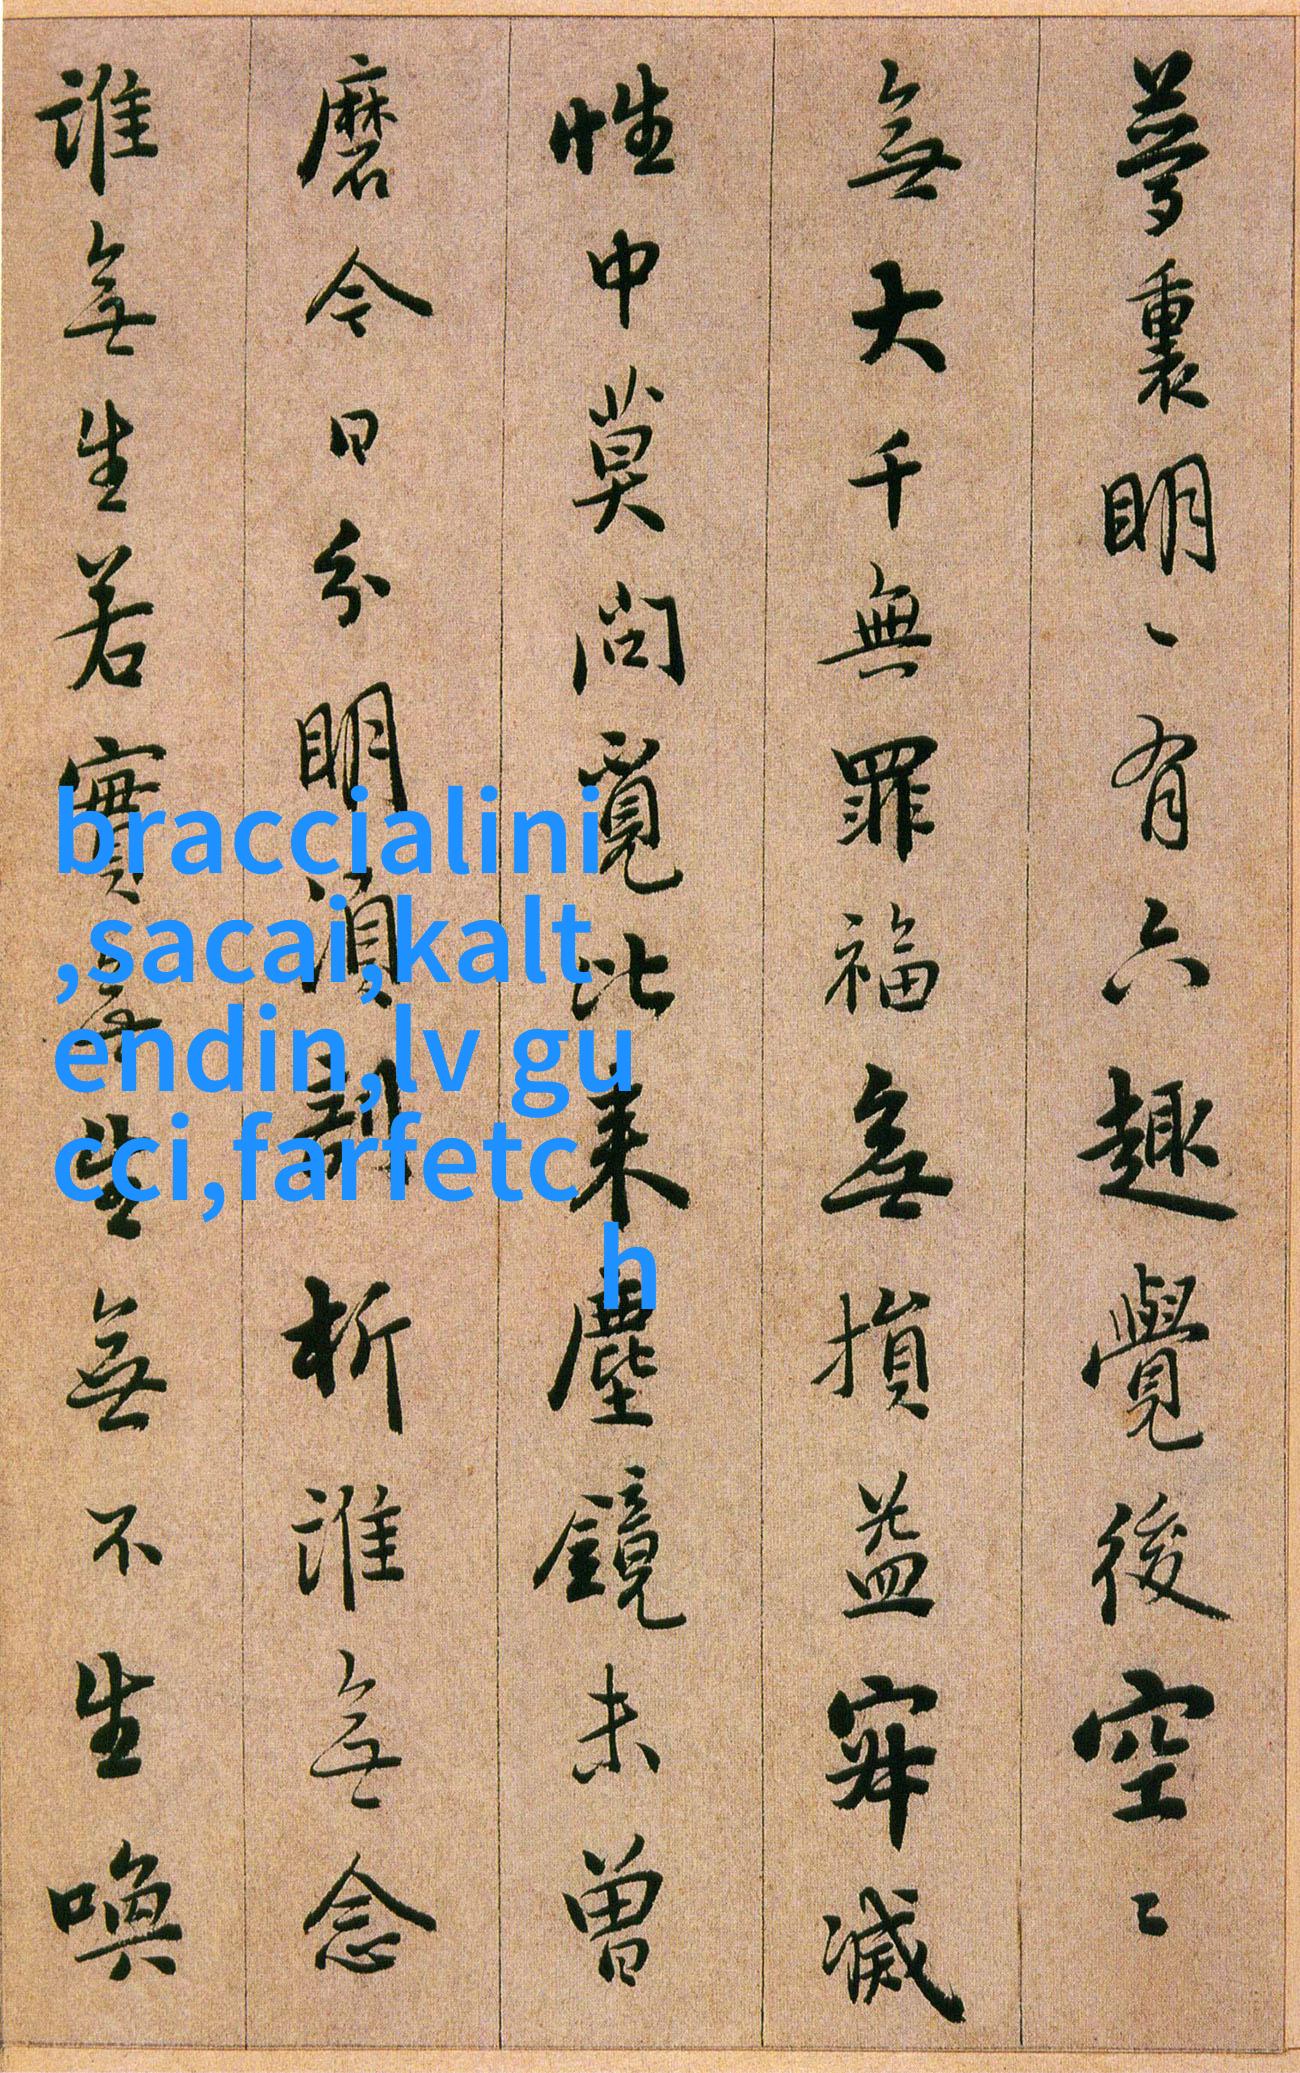 夢裏明丶有六趣覺後空〻
無大千無罪福無損益寂滅
性中莫問覓比来塵鏡未曾
磨今日分明須剖析誰無念
誰無生若實無生無不生喚
braccialini
,sacai,kalt
endin,lv gu
cci,farfetc
h